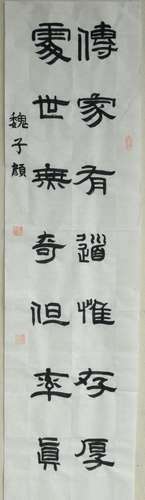 傳家有道惟存厚
處世無奇但率真
魏子顏